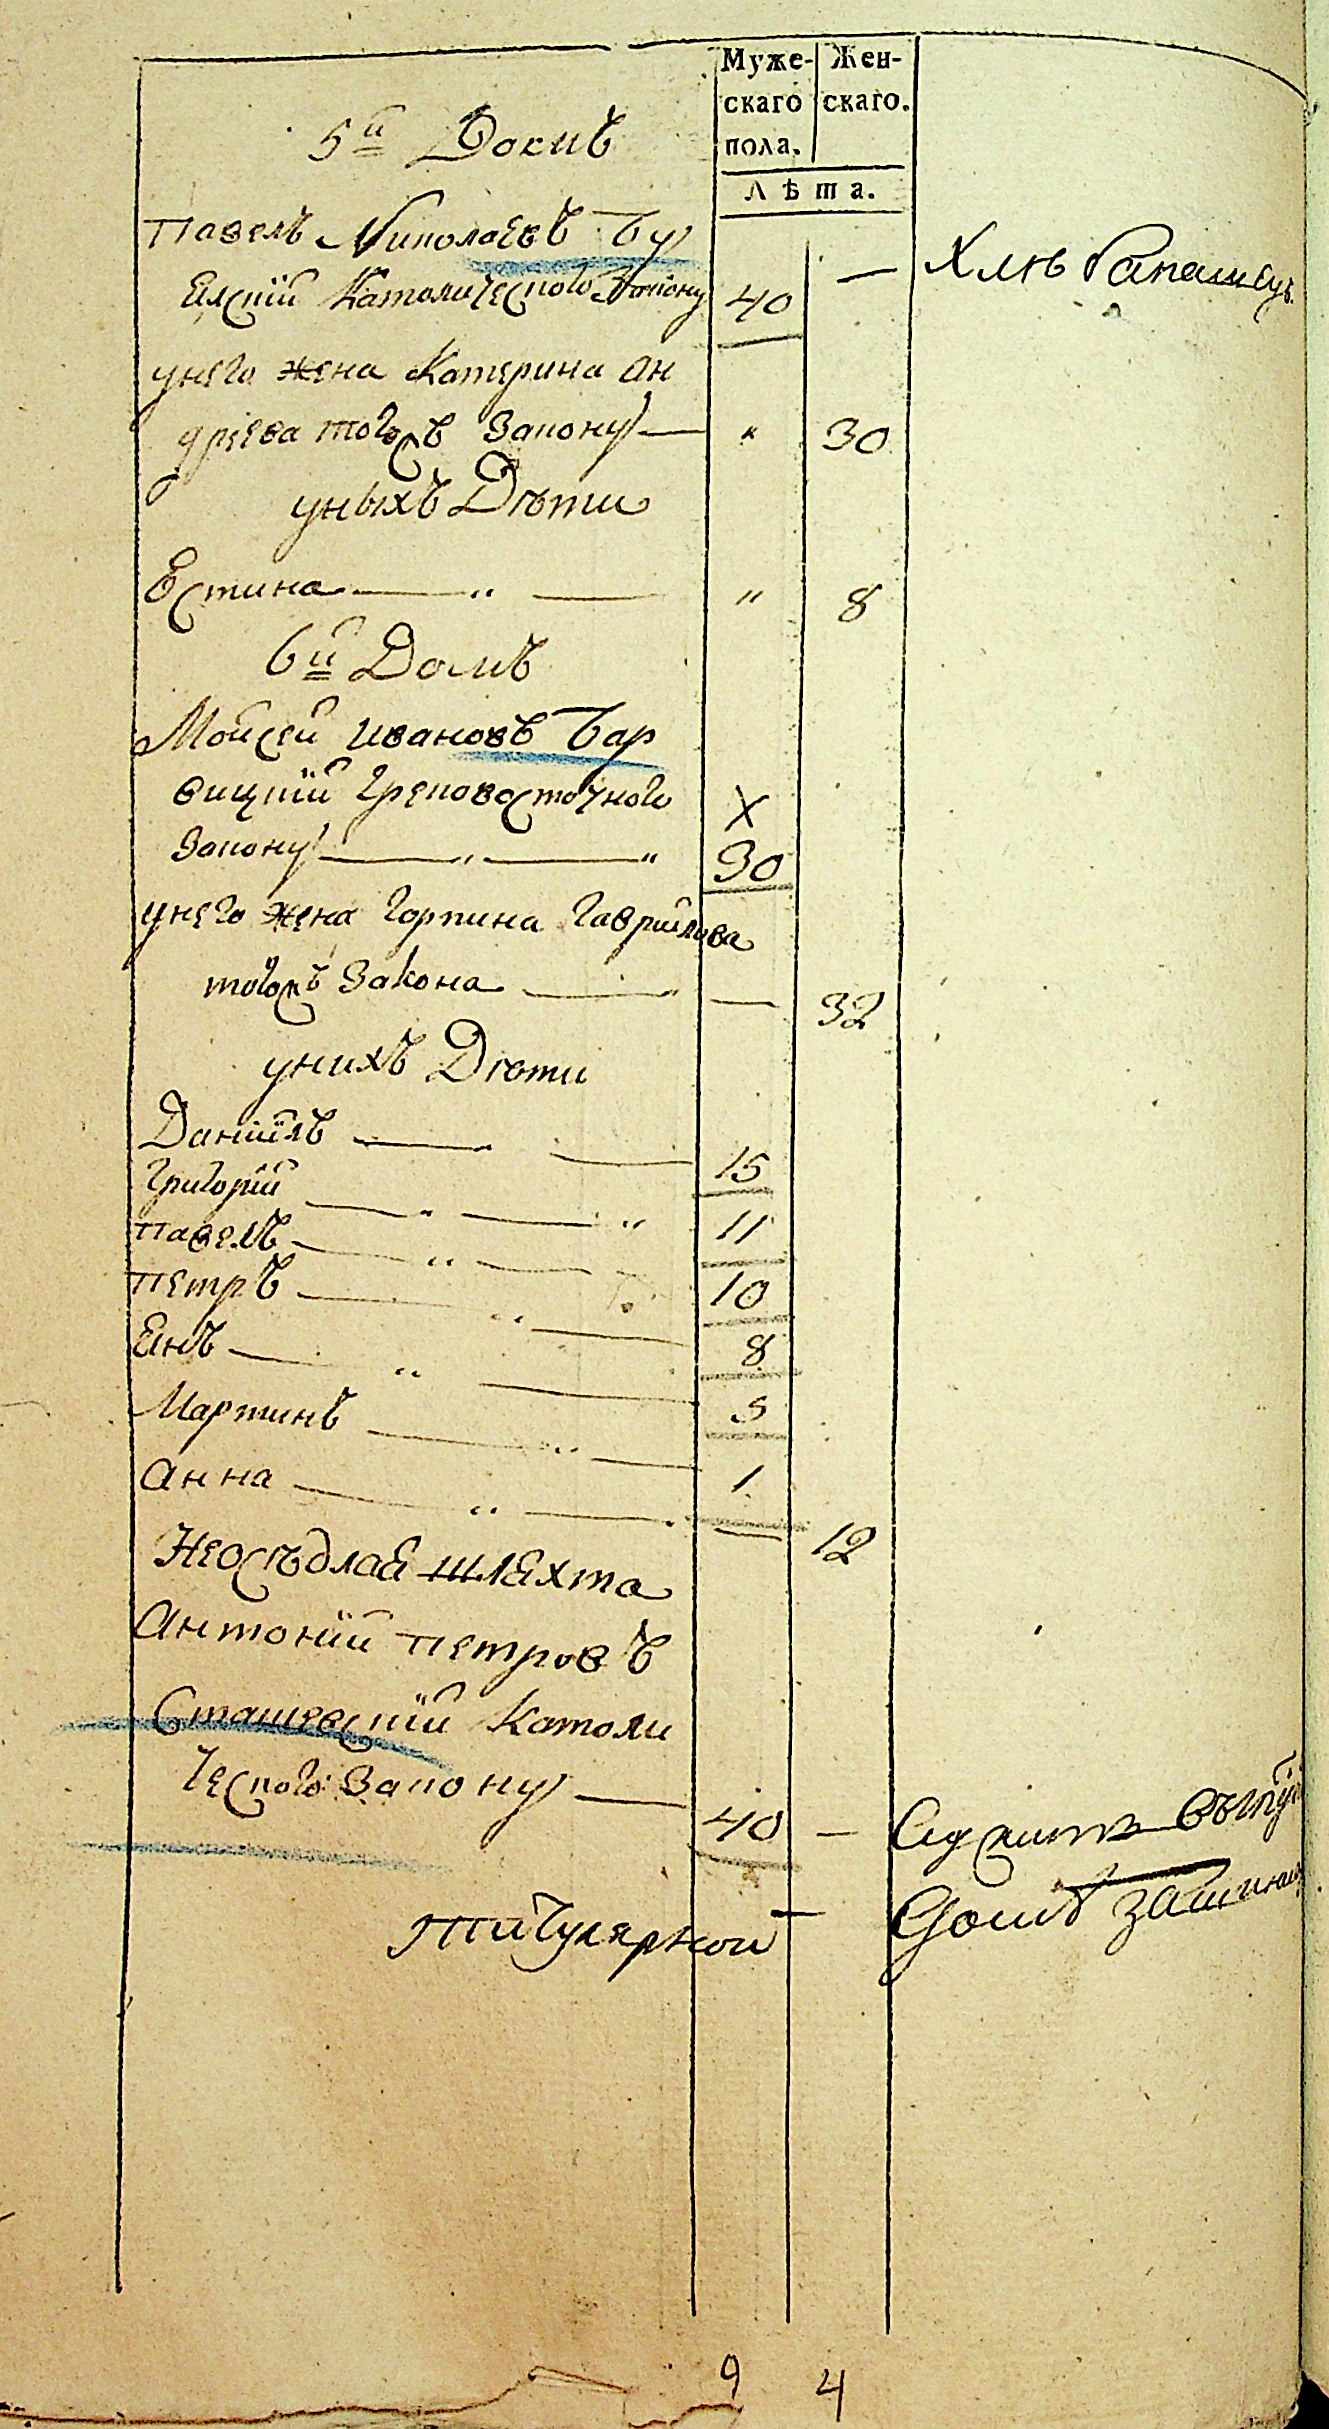 Муже- Жен-
скаго скаго.
пола.
Лѣта.
5й Домъ
Павелъ Николаевъ Бу
Елскій Католического Закону 40 — Хлѣбопашецъ
унего жена Катерина Ан
дреева тогожъ Закону — " 30
уныхъ Дѣти
Естина — " — " 8
6й Домъ
Мойсей Ивановъ Бар
вицкій Грековосточного X
Закону — " — " 30
унего жена Горпина Гаврилова
тогожъ Закона — " — 32
унихъ Дѣти
Даниилъ — 15
Григорій — " — " 11
Павелъ — " — 10
Петръ — " — 8
Янъ — " — 5
Мартинъ — " — 1
Анна — " — — 12
Неосѣдлая шляхта
Антоній Петровъ
Сташевскій Католи
ческого Закону — 40 —
9 4